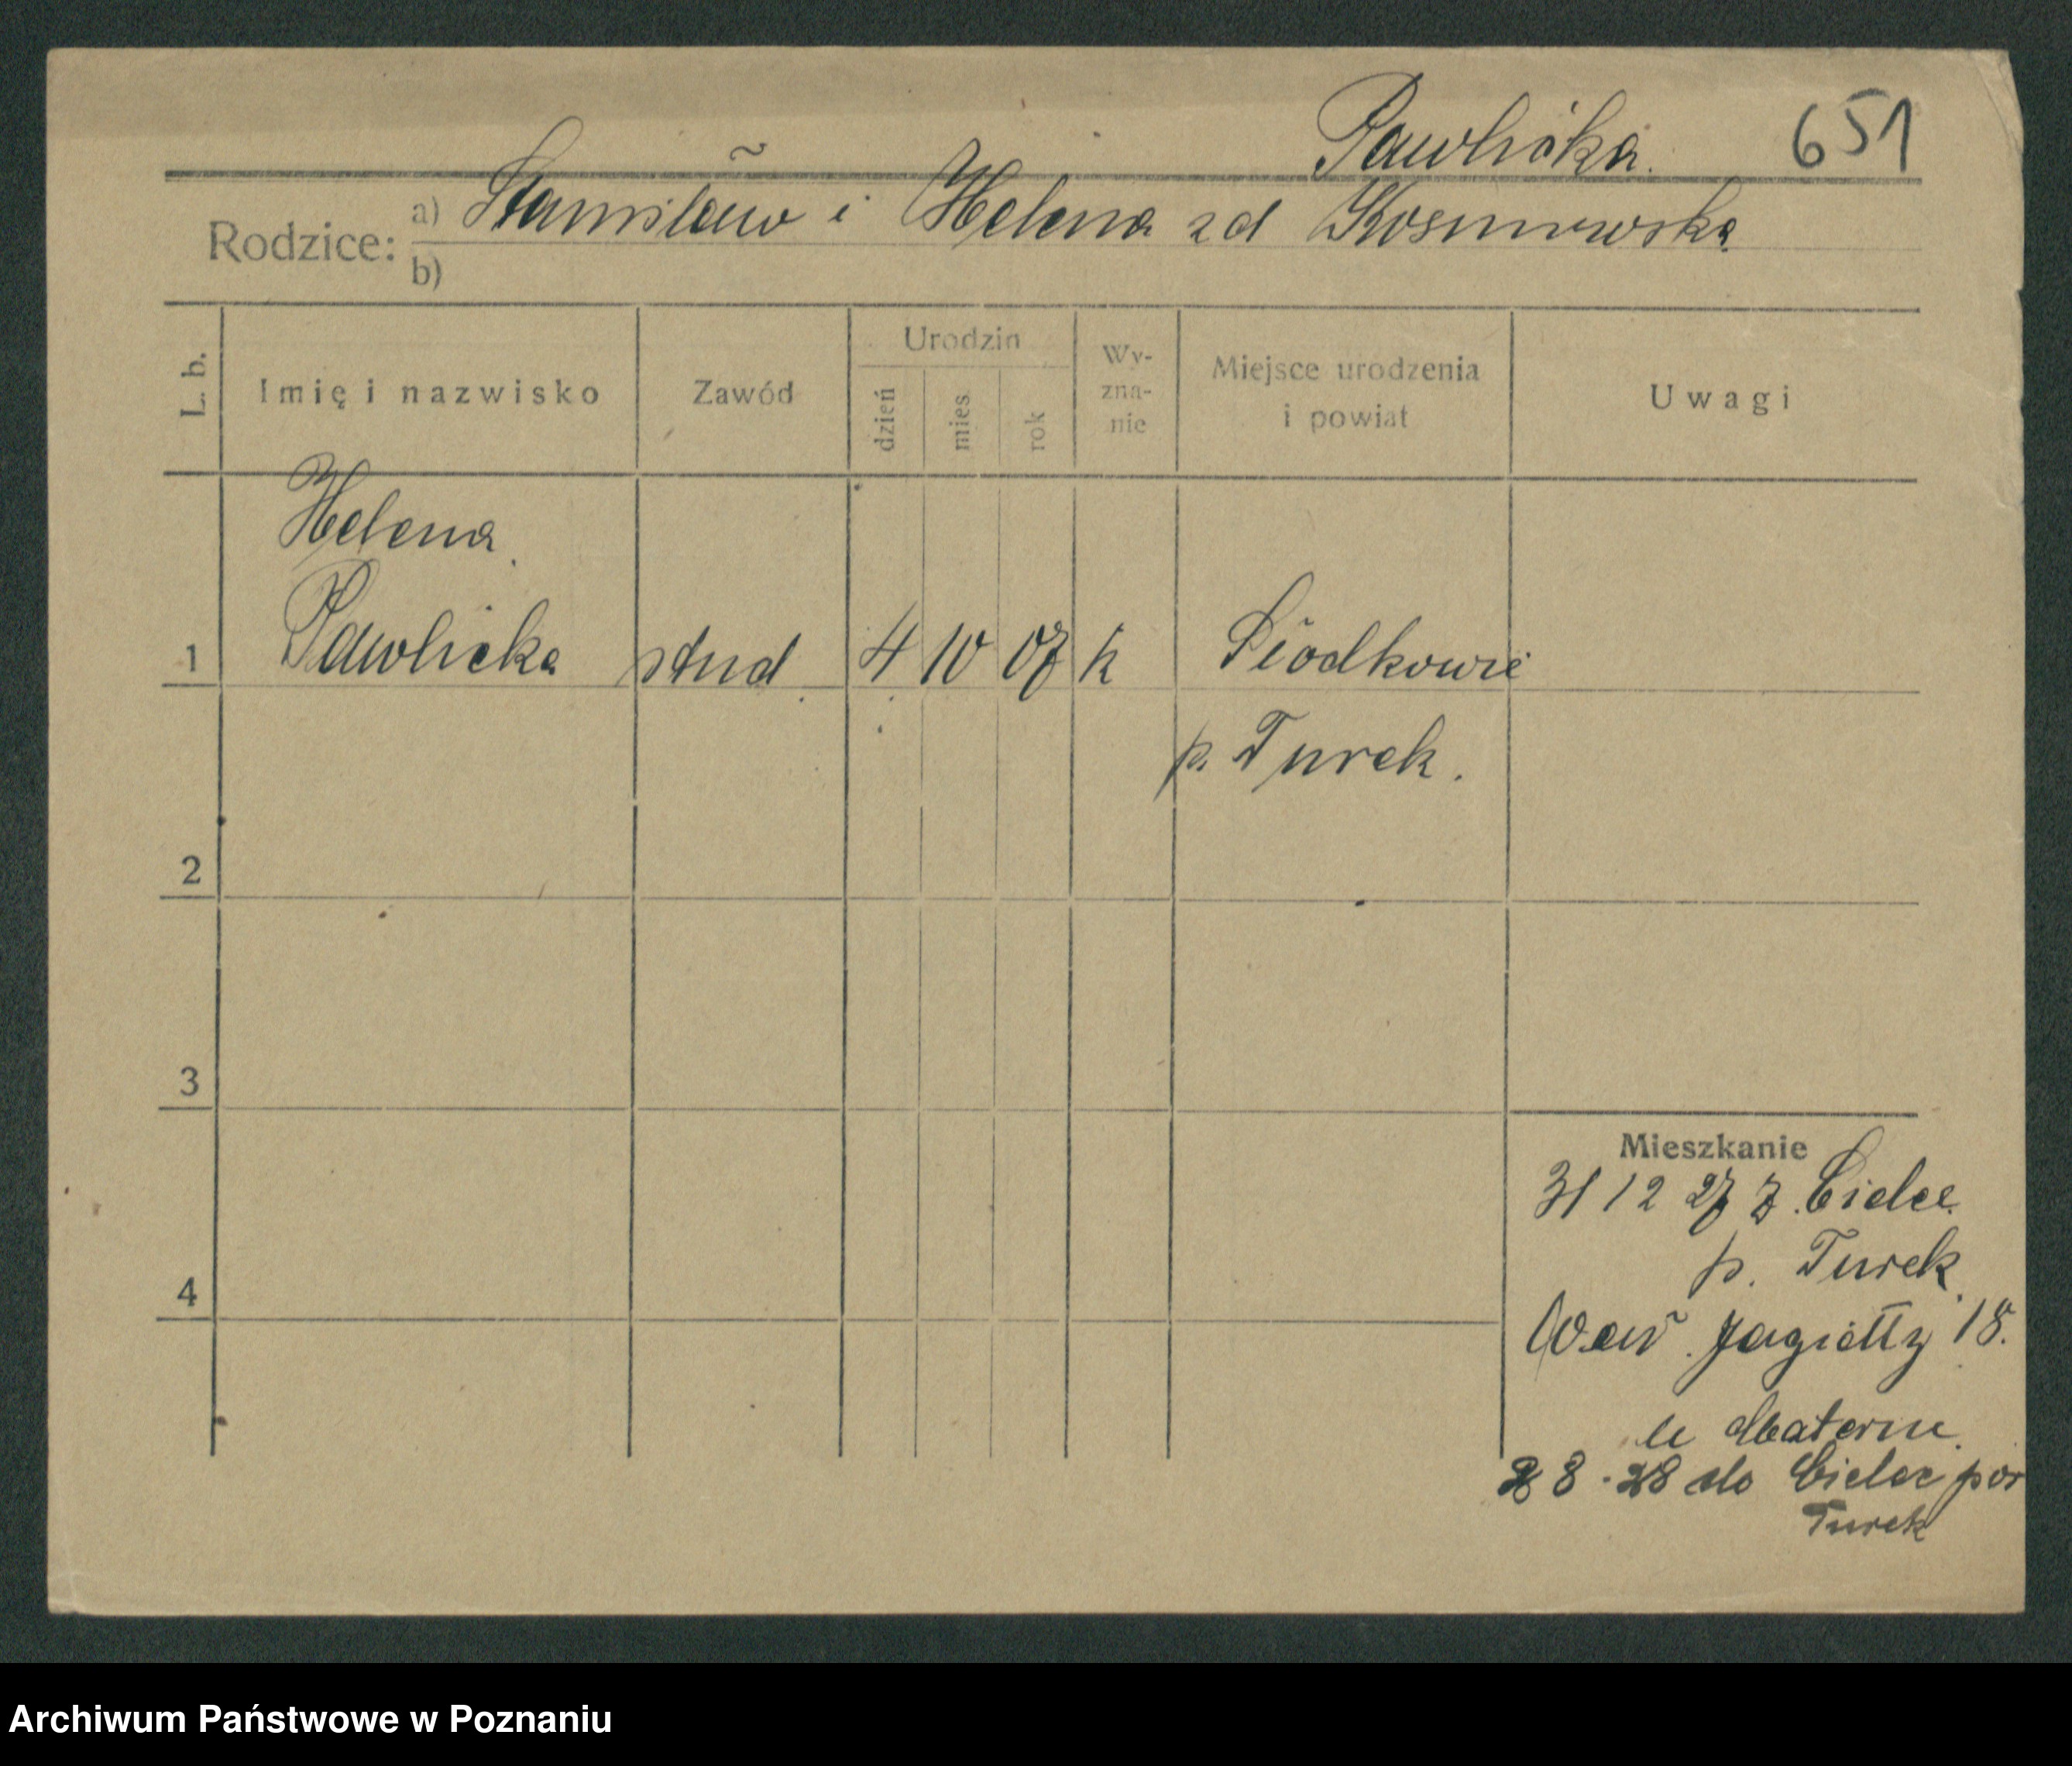 Pawlicka. 651
Rodzice: a) Stanisław i Helena zd Kosmowska
b)
L. b. Imię i nazwisko Zawód Urodzin dzień mies. rok Wy-zna-nie Miejsce urodzenia i powiat Uwagi
Helena
1 Pawlicka stud 4 10 07 k
p. Turek.
2
3
Mieszkanie
31 12 27 z. Cielce
p. Turek
4
Waw. Jagiełły 18.
u
8 28 do Cielce pow
Turek
Archiwum Państwowe w Poznaniu